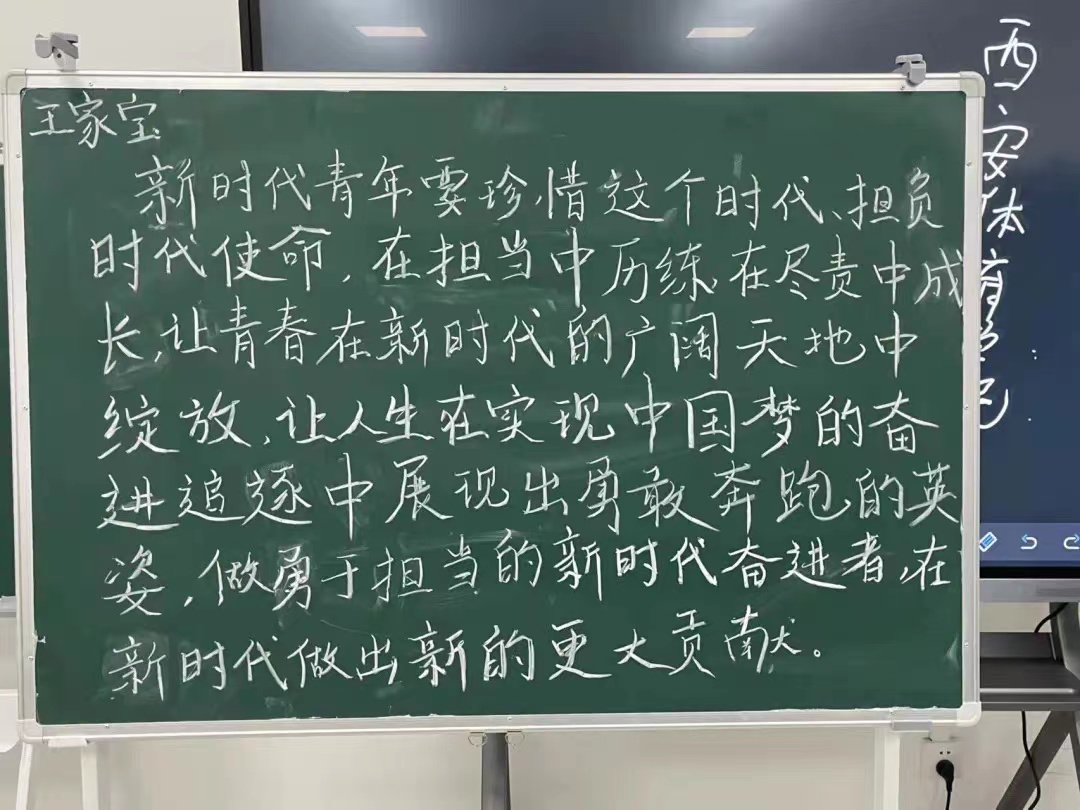 王家宝
新时代青年要珍惜这个时代、担负
时代使命，在担当中历练，在尽责中成
长，让青春在新时代的广阔天地中
绽放，让人生在实现中国梦的奋
进追逐中展现出勇敢奔跑的英
姿，做勇于担当的新时代奋进者，在
新时代做出新的更大贡献。
西安体育